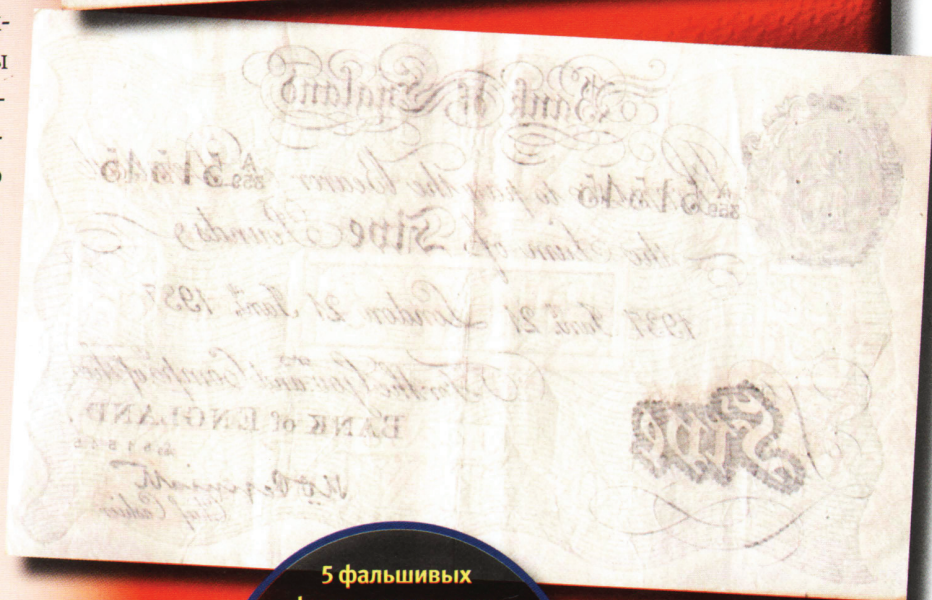 Bank of England
A/359 51545 to pay the Bearer A/359 51545
the Sum of Five Pounds
1937 Jany. 21 London 21 Jany. 1937
For the Govr. and Compa. of the
BANK of ENGLAND.
Chief Cashier
Five
ы
5 фальшивых